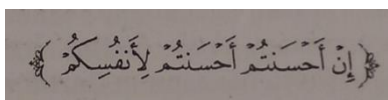 ﴿ إِنْ أَحْسَنتُمْ أَحْسَنتُمْ لِأَنفُسِكُمْ ﴾